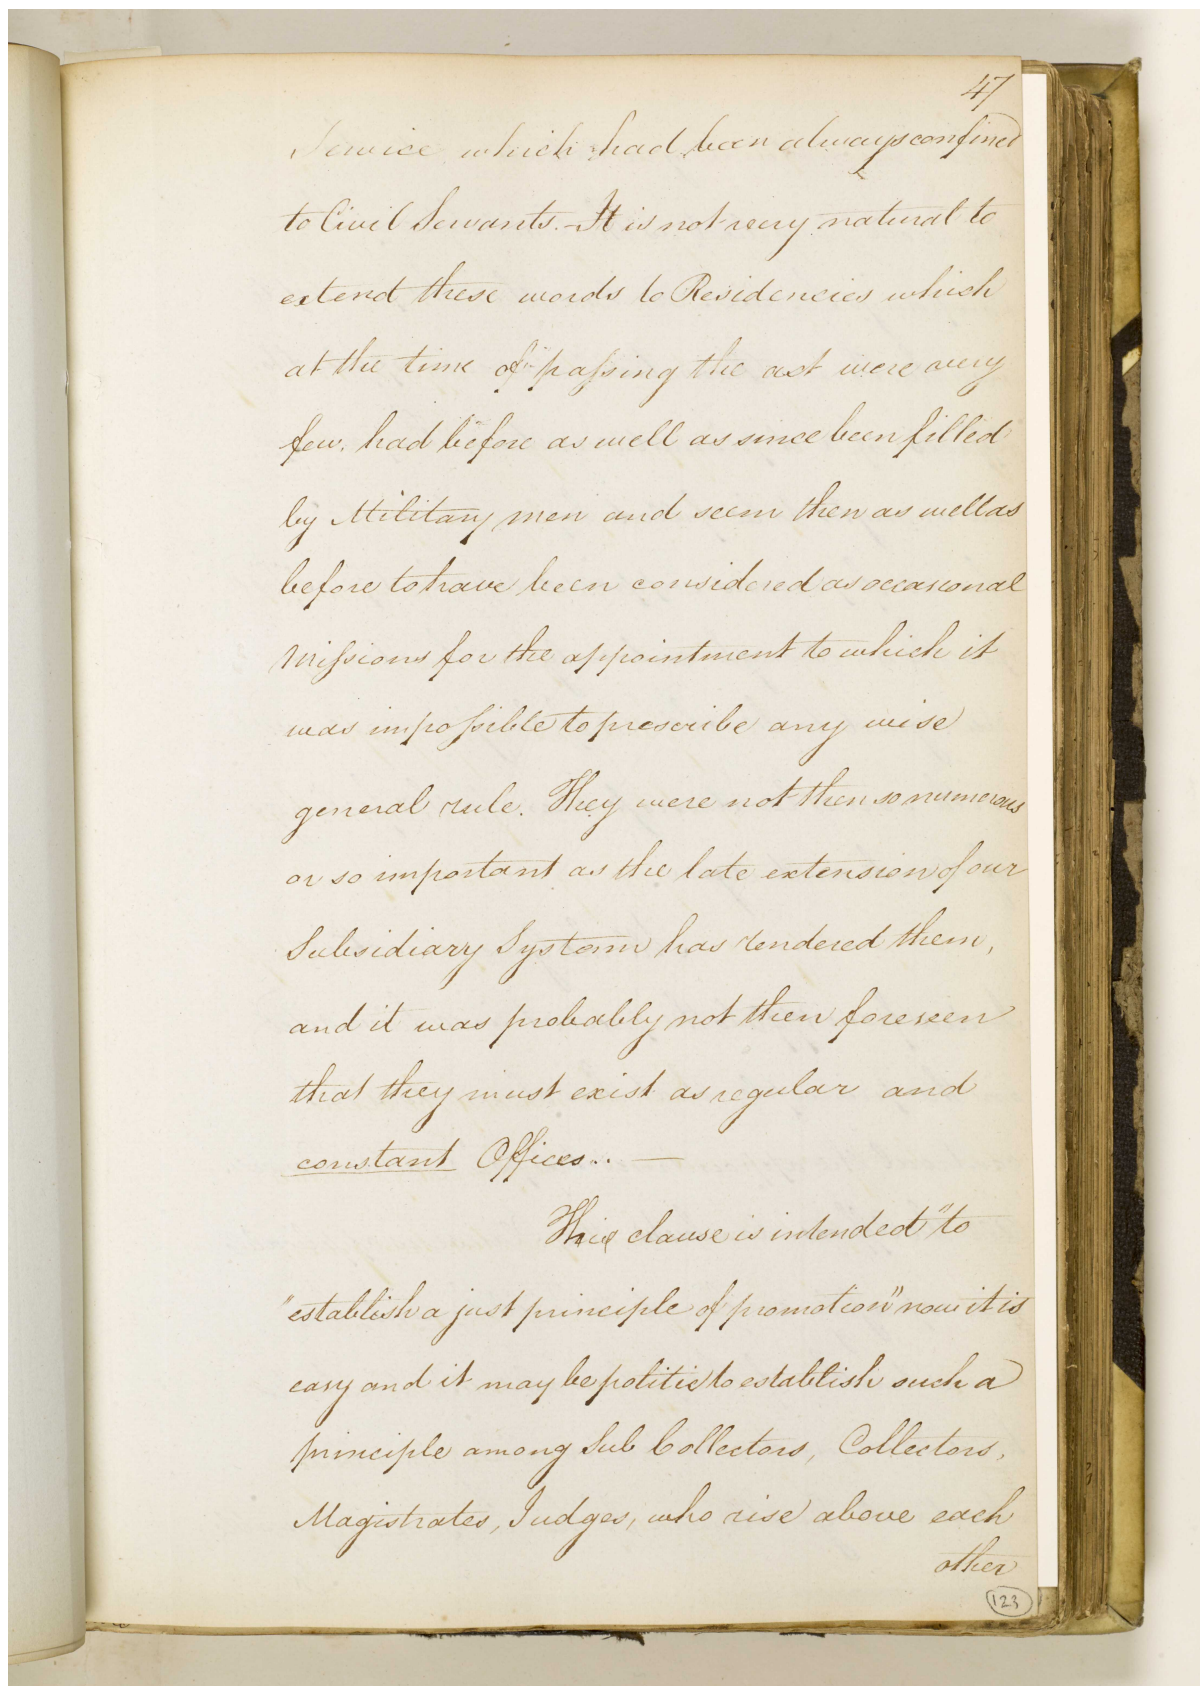 47
Service which had been always confined
to Civil Servants. - It is not very natural to
extend these words to Residencies which
at the time of passing the act were very
few, had before as well as since been filled
by Military men and seem then as well as
before to have been considered as occasional
Missions for the appointment to which it
was impossible to prescribe any wise
general rule. They were not then so numerous
or so important as the late extension of our
Subsidiary System has rendered them,
and it was probably not then foreseen
that they must exist as regular and
constant Offices.. —
This clause is intended "to
"establish a just principle of promotion" now it is
easy and it may be politic to establish such a
principle among Sub Collectors, Collectors,
Magistrates, Judges, who rise above each
other
123